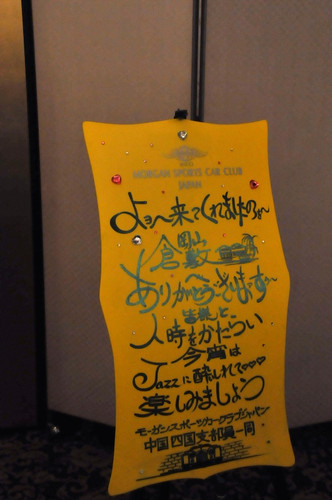 MORGAN SPORTS CAR CLUB
JAPAN
よぅへ来てくれましたのぉ〜
岡山
倉敷
ありがとう ございます〜
皆様と
人時をかたらい
今宵は
Jazzに酔しれて♡♡♡
楽しみましょう
モーガンスポーツカークラブジャパン
中国四国支部員一同